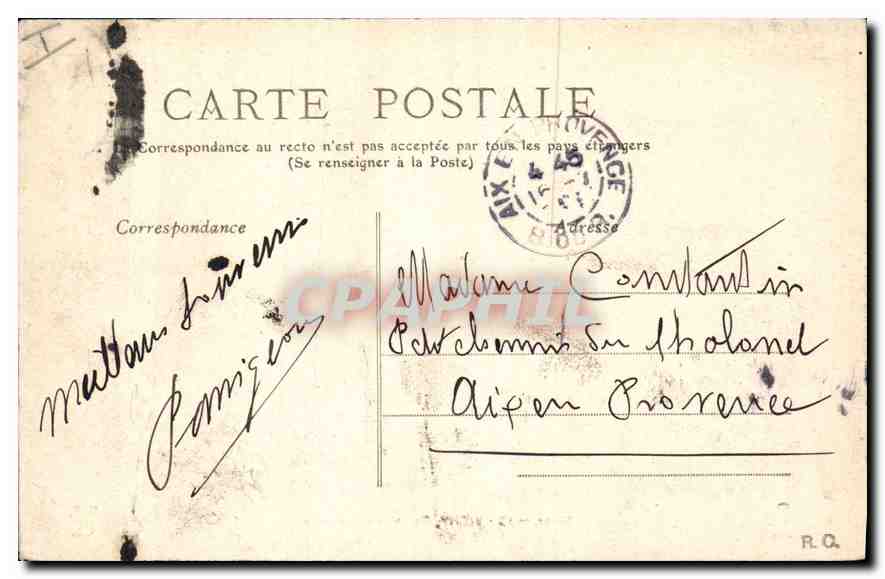 CARTE POSTALE
La Correspondance au recto n'est pas acceptée par tous les pays étrangers
(Se renseigner à la Poste)
AIX EN PROVENCE
Correspondance
Adresse
Meilleurs souvenirs
Madame Constantin
Petit chemin du Tholonet
Aix en Provence
CPAPHIL
R. C.